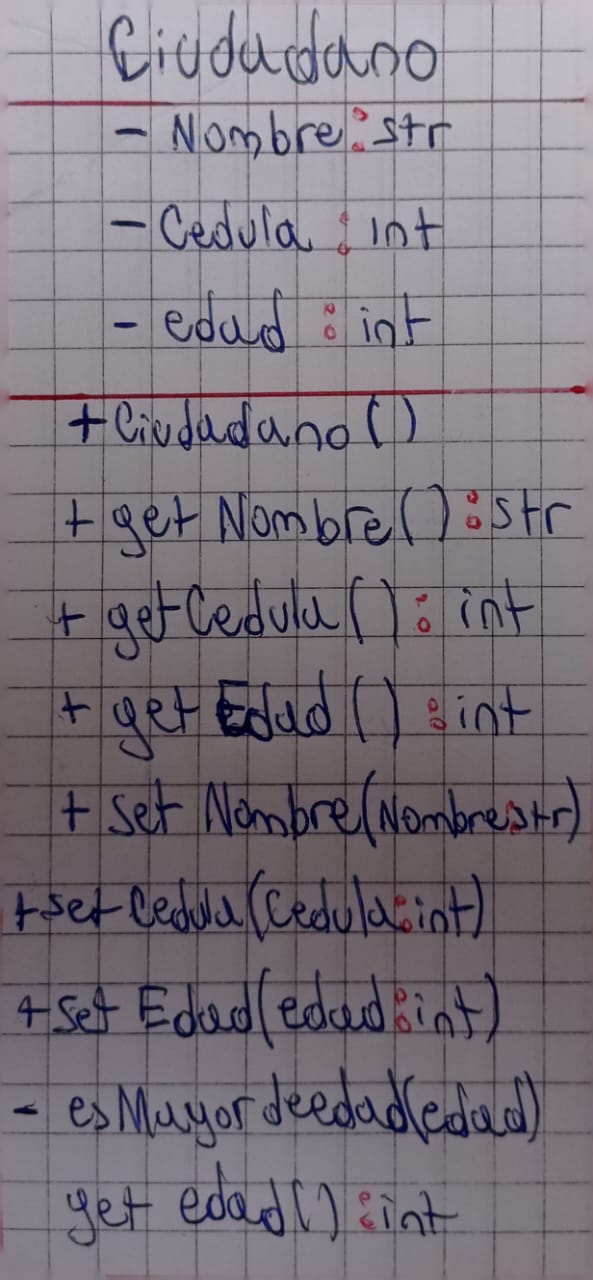 Ciudadano
- Nombre: str
- Cedula : int
- edad : int
+ Ciudadano()
+ get Nombre() : str
+ getCedula() : int
+ get Edad() : int
+ set Nombre(Nombre:str)
+set Cedula(Cedula:int)
+ set Edad(edad:int)
- esMayordeedad(edad)
get edad() : int